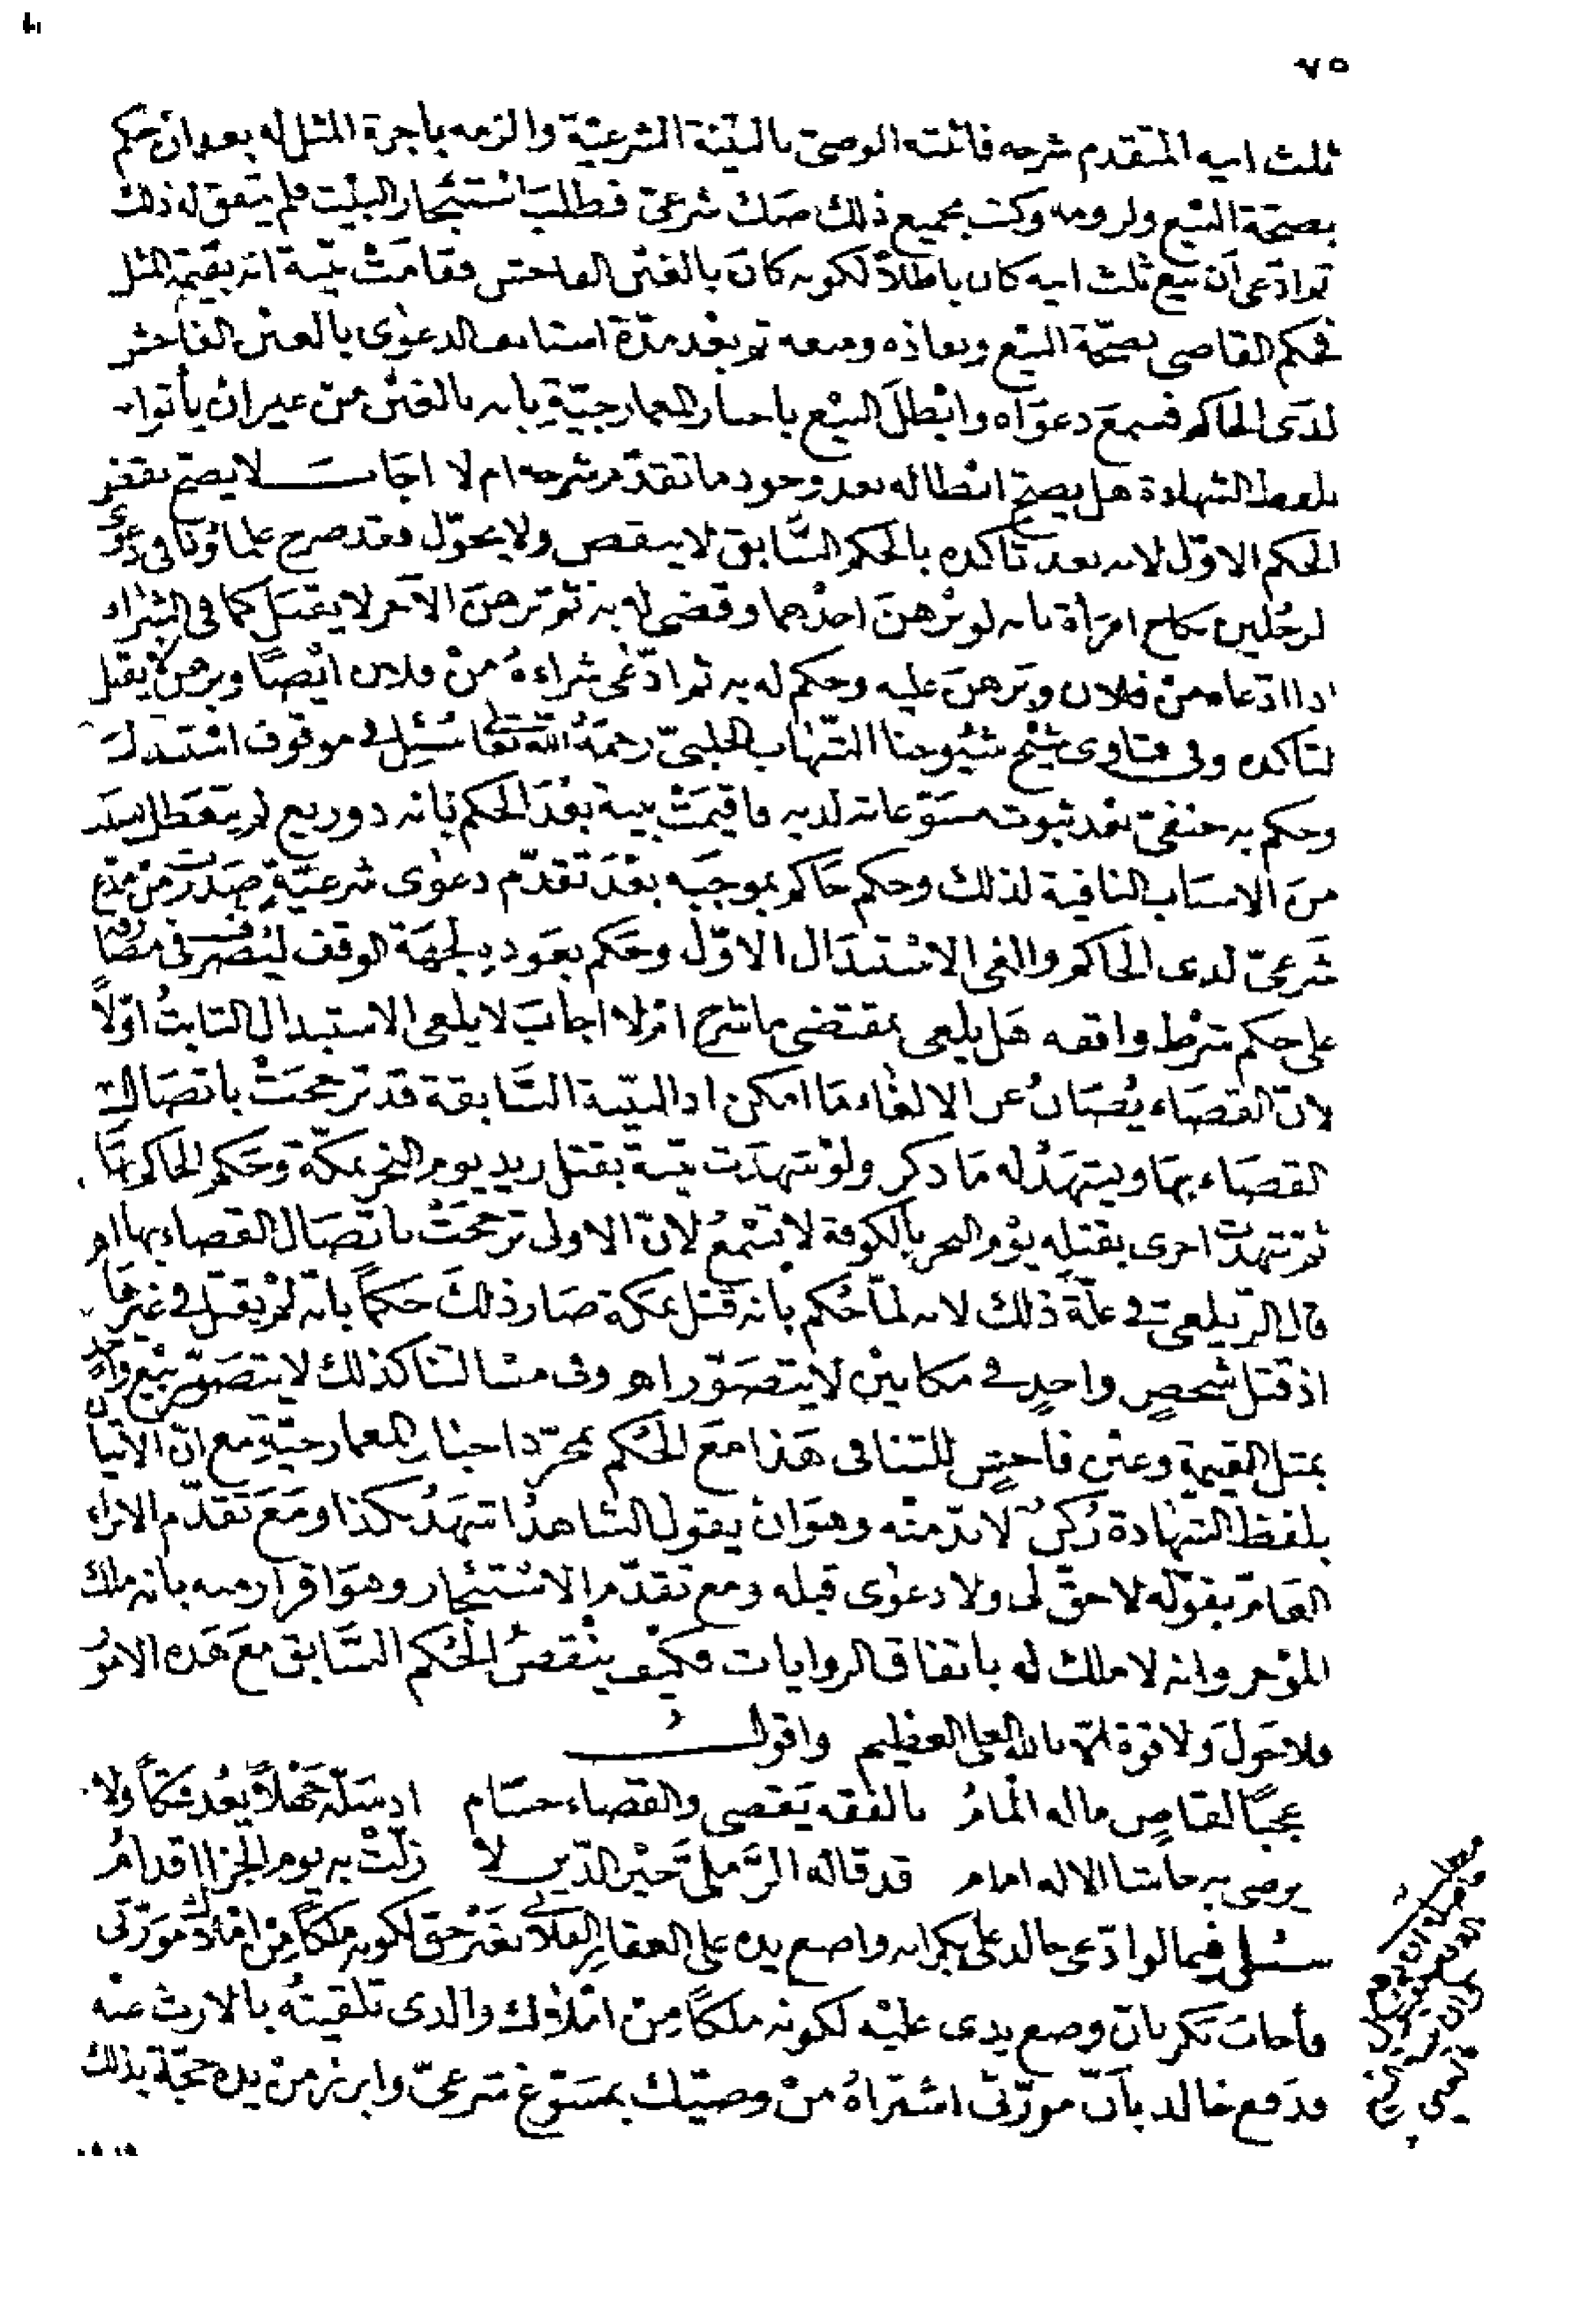 ٧٥
ثلث ابيه المتقدم شرحه فاثبته الوصى بالبيّنة الشرعيّة والزمه باجرة المثل له بعد ان حكم
بصحّة البيع ولزومه وكتب بجميع ذلك صك شرعىّ فطلب استئجار البيت فلم يتفق له ذلك
ثم ادّعى أن بيع ثلث ابيه كان باطلاً لكونه كان بالغبن الفاحش فقامت بيّنة انه بقيمة المثل
فحكم القاضى بصحّة البيع ونفاذه ومنعه ثم بعد مدّة استانف الدعوى بالغبن الفاحش
لدى الحاكم فسمع دعواه وابطل البيع باخبار المعمارجيّة بانه بالغبن من غير ان يأتوا
بلفظ الشهادة هل يصحّ ابطاله بعد وجود ما تقدّم شرحه ام لا اجاب لا يصحّ نقض
الحكم الاوّل لانه بعد تأكده بالحكم السّابق لا ينقض ولا يحوّل وقد صرح علماؤنا فى دعوى
لرجُلين نكاح امرأة بانه لو برهن احدهما وقضى له به ثم برهن الآخر لا يقبل كما فى الشراء
اذا ادّعاه من فلان وبرهن عليه وحكم له به ثم ادّعى شراءهُ من فلان ايضًا وبرهن لا يقبل
لتأكده وفى فتاوى شيخ شيوخنا الشهاب الحلبىّ رحمهُ الله تعالى سُئل فى موقوف استبدل
وحكم به حنفىّ بعد ثبوت مسوّغاته لديه فاقيمت بينة بعد الحكم بانه ذو ريع لم يتعطل بسبب
من الاسباب النافية لذلك وحكم حاكم بموجبه بعد تقدّم دعوى شرعيّة صدرت من مدّع
شرعىّ لدى الحاكم والغى الاستبدال الاوّل وحكم بعوده لجهة الوقف ليُصرف فى مصارفه
على حكم شرط واقفه هل يلغى بمقتضى ما شرح ام لا اجاب لا يلغى الاستبدال الثابتُ اوّلاً
لانّ القضاء يُصانُ عن الالغاء ما امكن اذ البيّنة السّابقة قد ترجحت باتصال
القضاء بها ويشهدُ له ما ذكر ولو شهدت بيّنة بقتل زيد يوم النحر بمكّة وحكم الحاكم بها
ثم شهدت اخرى بقتله يوم النحر بالكوفة لا تسمعُ لانّ الاولى ترجحت باتّصال القضاء بها اهـ
قال الزّيلعىّ فى علّة ذلك لانه لمّا حُكم بانه قتل بمكة صار ذلك حكماً بانّه لم يقتل فى غيرها
اذ قتل شخصٍ واحدٍ فى مكانين لا يتصوّر اهـ وفى مسألتنا كذلك لا يتصوّر بيع واحد
بمثل القيمة وغبن فاحشٍ للتنافى هذا مع الحُكم بمجرّد اخبار المعمارجيّة مع انّ الاتيان
بلفظ الشهادة رُكنٌ لا بدّ منه وهو ان يقول الشاهدُ اشهدُ بكذا ومع تقدّم الابراء
العامّ بقوله لا حقّ لى ولا دعوى قبله ومع تقدّم الاستئجار وهو اقرار منه بانه ملك
المؤجر وانه لا ملك له باتفاق الروايات فكيف ينقضُ الحُكم السّابق مع هذه الامُور
ولا حول ولا قوة الّا بالله العلى العظيم واقولُ
عجباً لقاضٍ ماله المامُ بالفقه يقضى والقضاء حسام اذ سَلّه جهلاً يعُد ولا
يرضى به حاشا الاله امام قد قاله الرّملىّ خير الدّين لا زلّت به يوم الجزا اقدامُ
سُئل فيما لو ادّعى خالد على بكر انه واضع يده على العقار الفلانىّ بغير حق لكونه ملكاً من املاك مورّثى
فأجاب بكر بانّ وضع يدى عليه لكونه ملكاً من املاك والدى تلقيتهُ بالارث عنه
فدفع خالد بأنّ مورّثى اشتراهُ من وصيّك بمسوّغ شرعىّ وابرز من يده حجّة بذلك